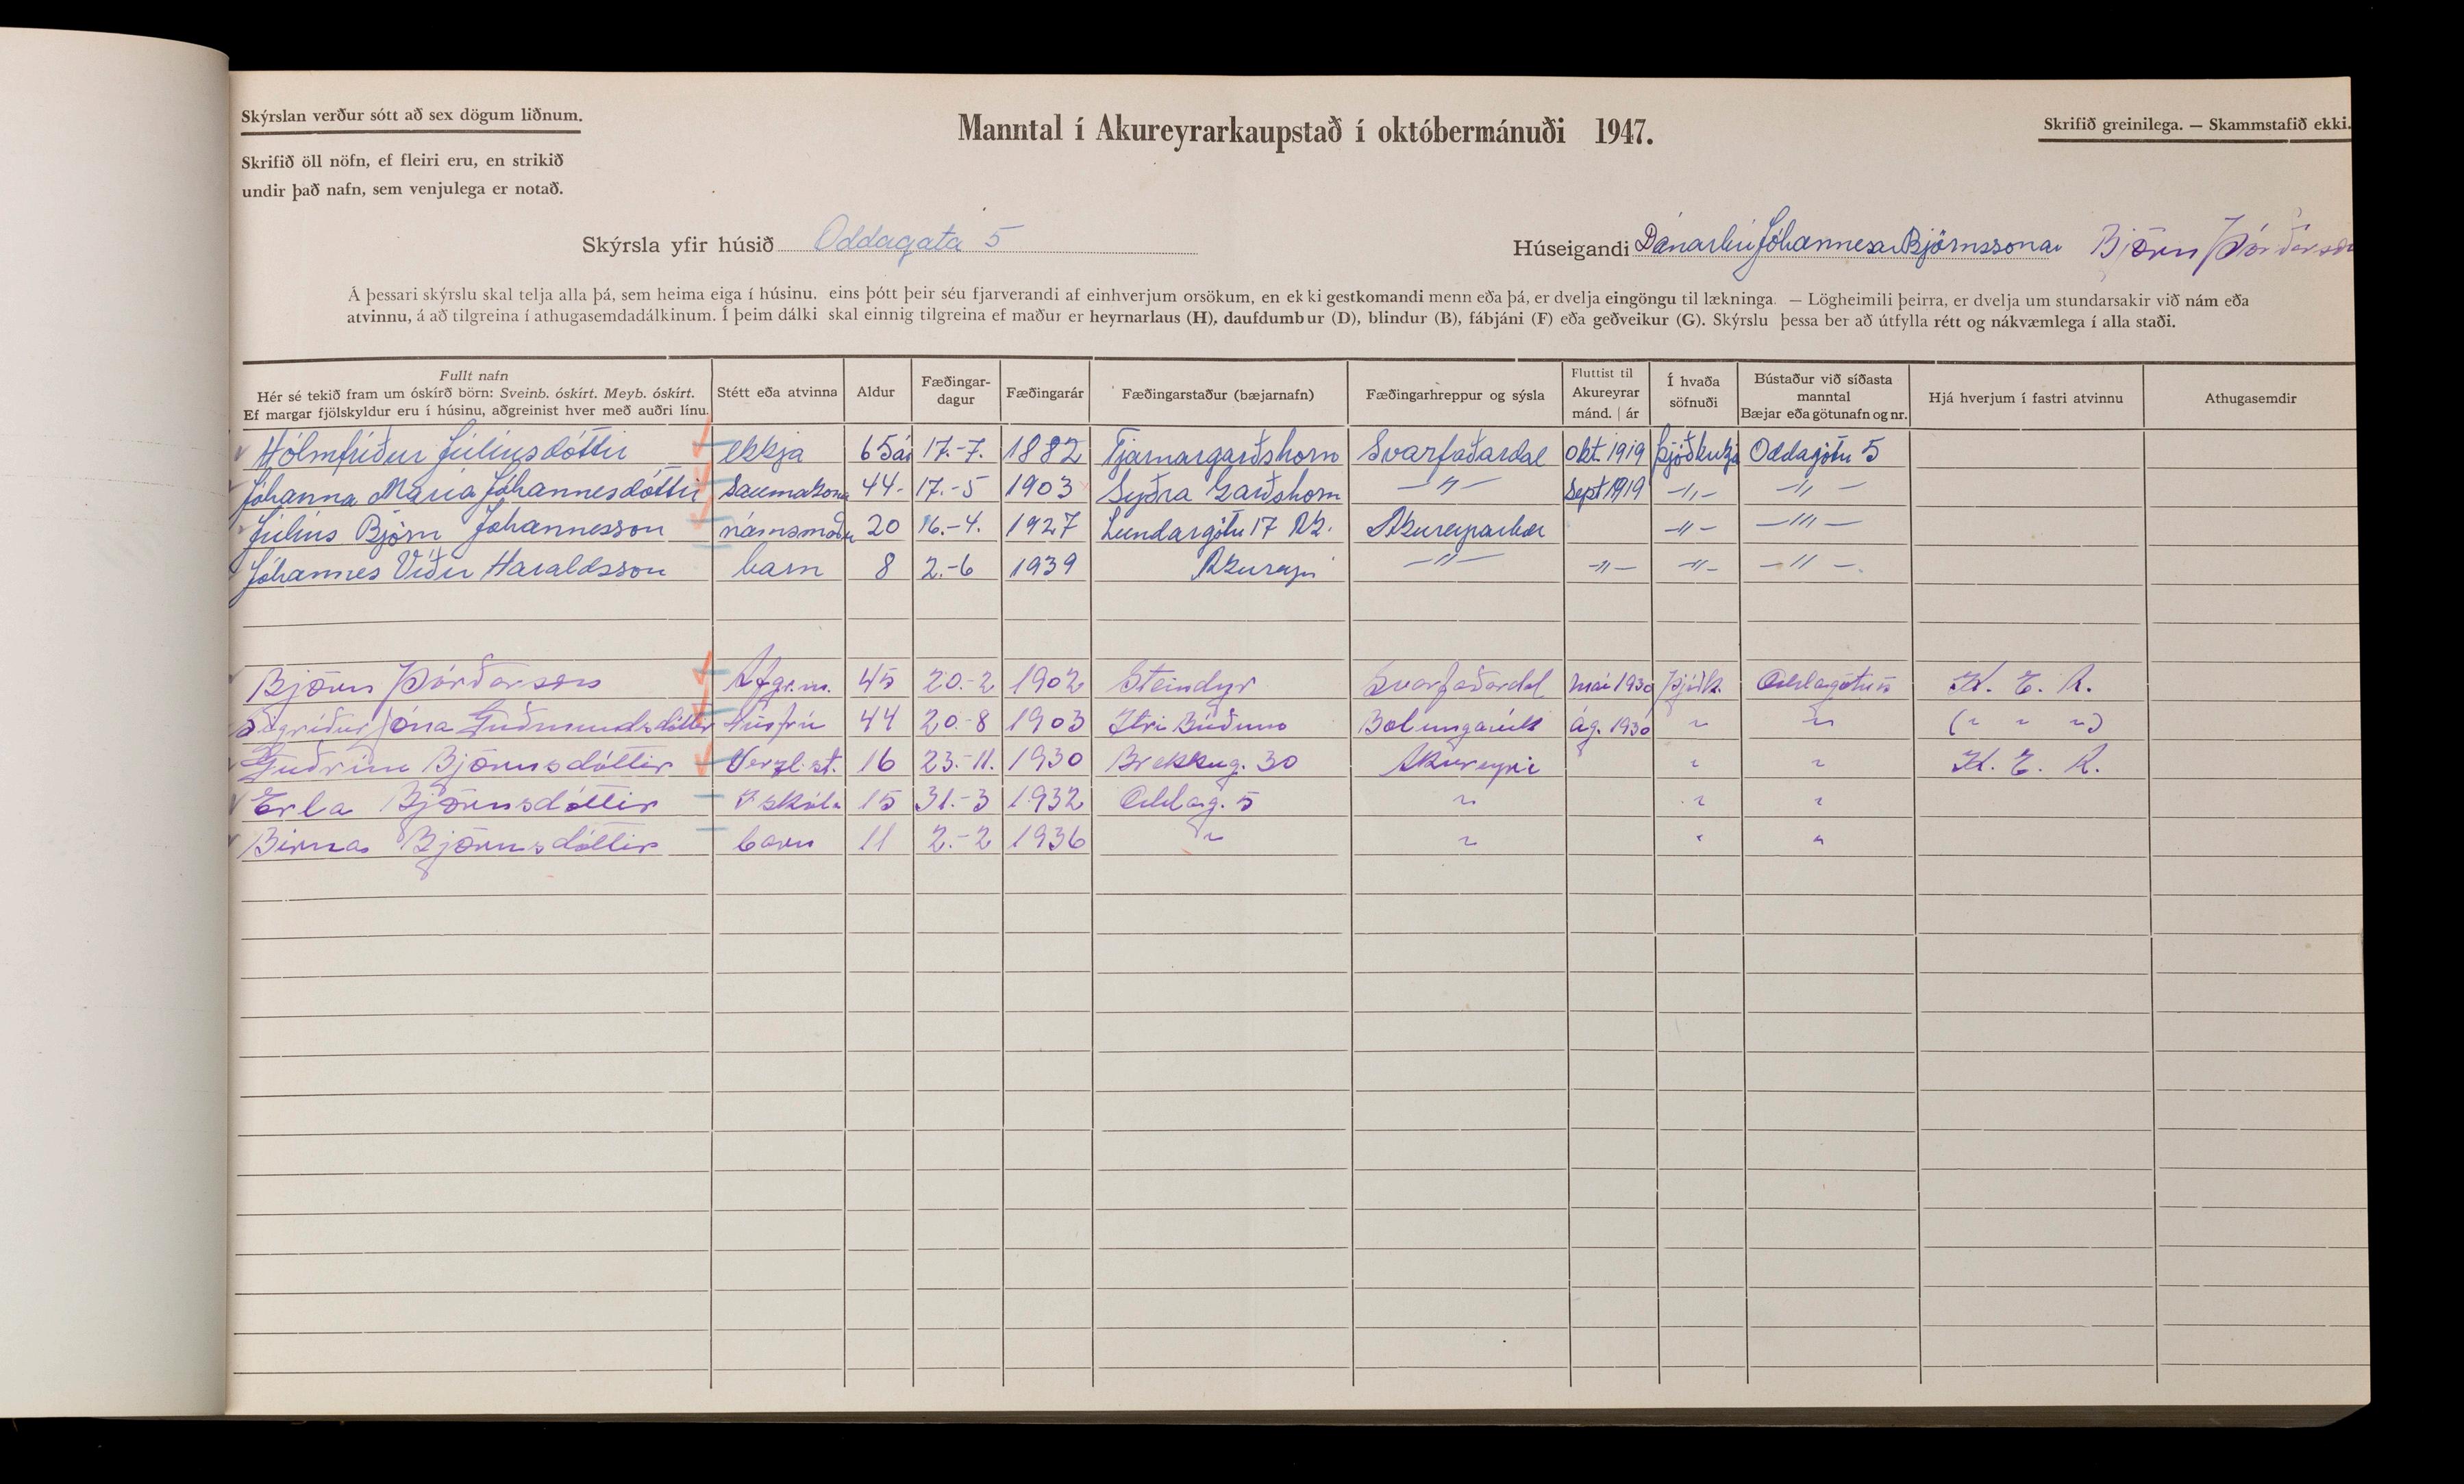 Skýrslan verður sótt að sex dögum liðnum.
Manntal í Akureyrarkaupstað í októbermánuði 1947.
Skrifið greinilega. — Skammstafið ekki.
Skrifið öll nöfn, ef fleiri eru, en strikið
undir það nafn, sem venjulega er notað.
Skýrsla yfir húsið Oddagata 5
Húseigandi Dánarbú Jóhannesar Björnssonar Björn Þórðarson
Á þessari skýrslu skal telja alla þá, sem heima eiga í húsinu, eins þótt þeir séu fjarverandi af einhverjum orsökum, en ekki gestkomandi menn eða þá, er dvelja eingöngu til lækninga. — Lögheimili þeirra, er dvelja um stundarsakir við nám eða
atvinnu, á að tilgreina í athugasemdadálkinum. Í þeim dálki skal einnig tilgreina ef maður er heyrnarlaus (H), daufdumbur (D), blindur (B), fábjáni (F) eða geðveikur (G). Skýrslu þessa ber að útfylla rétt og nákvæmlega í alla staði.
Fullt nafn
Hér sé tekið fram um óskírð börn: Sveinb. óskírt. Meyb. óskírt.
Ef margar fjölskyldur eru í húsinu, aðgreinist hver með auðri línu.
Stétt eða atvinna
Aldur
Fæðingar-
dagur
Fæðingarár
Fæðingarstaður (bæjarnafn)
Fæðingarhreppur og sýsla
Fluttist til
Akureyrar
mánd. | ár
Í hvaða
söfnuði
Bústaður við síðasta
manntal
Bæjar eða götunafn og nr.
Hjá hverjum í fastri atvinnu
Athugasemdir
Hólmfríður Júlíusdóttir ekkja 65 ár 17.-7. 1882 Tjarnargarðshorn Svarfaðardal okt. 1919 þjóðkirkja Oddagötu 5
Jóhanna María Jóhannesdóttir saumakona 44- 17.-5 1903 Syðra Garðshorn —〃— Sept 1919 —〃— —〃—
Júlíus Björn Jóhannesson námsmaður 20 16.-4. 1927 Lundargötu 17 Ak. Akureyrarbær —〃— —〃—
Jóhannes Víðir Haraldsson barn 8 2.-6 1939 Akureyri —〃— —〃— —〃— —〃—.
Björn Þórðarson Afgr.m. 45 20.-2 1902 Steindyr Svarfaðardal maí 1930 Þjóðk. Oddagötu 5 K. E. A.
Sigríður Jóna Guðmundsdóttir húsfrú 44 20.-8 1903 Ytri Búðum Bolungarvík ág. 1930 〃 〃 (〃 〃 〃)
Guðrún Björnsdóttir Verzl.st. 16 23.-11. 1930 Brekkug. 30 Akureyri 〃 〃 K. E. A.
Erla Björnsdóttir í skóla 15 31.-3 1932 Oddag. 5 〃 〃 〃
Birna Björnsdóttir barn 11 2.-2 1936 〃 〃 〃 〃